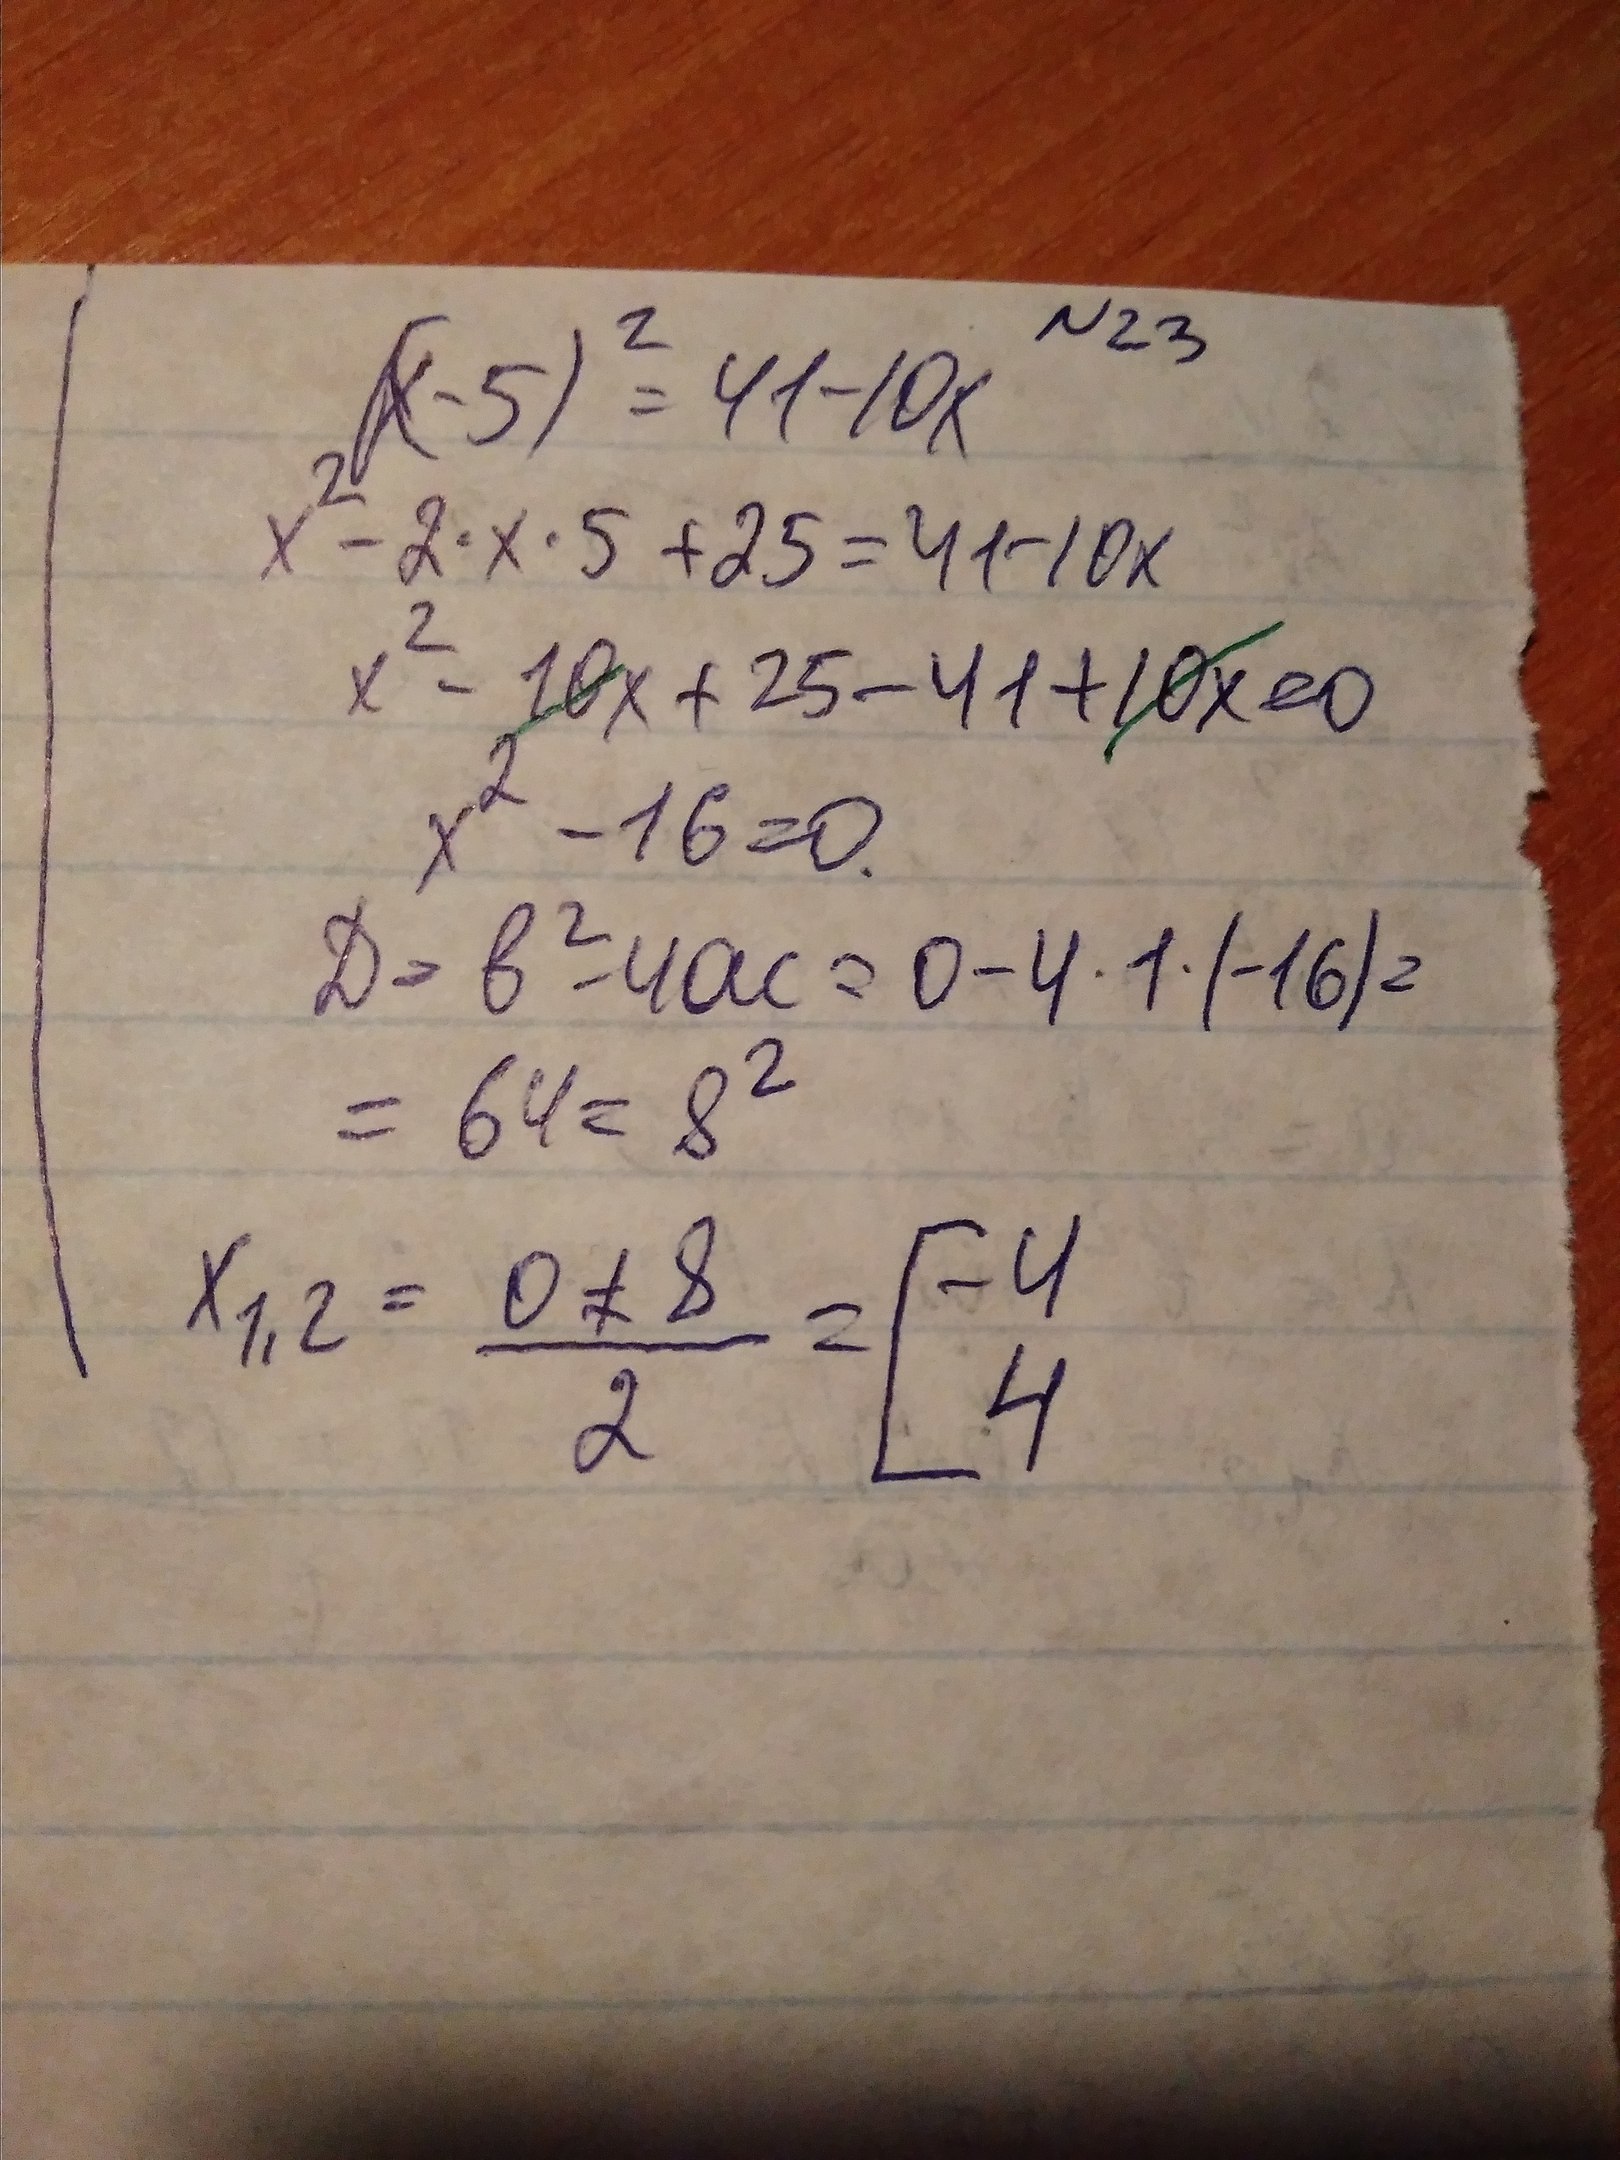 N23
(x-5)² = 41-10x
x² - 2·x·5 + 25 = 41-10x
x² - 10x + 25 - 41 + 10x = 0
x² - 16 = 0.
D = b² - 4ac = 0 - 4·1·(-16) =
= 64 = 8²
x₁,₂ = (0 ± 8)/2 = [-4
4